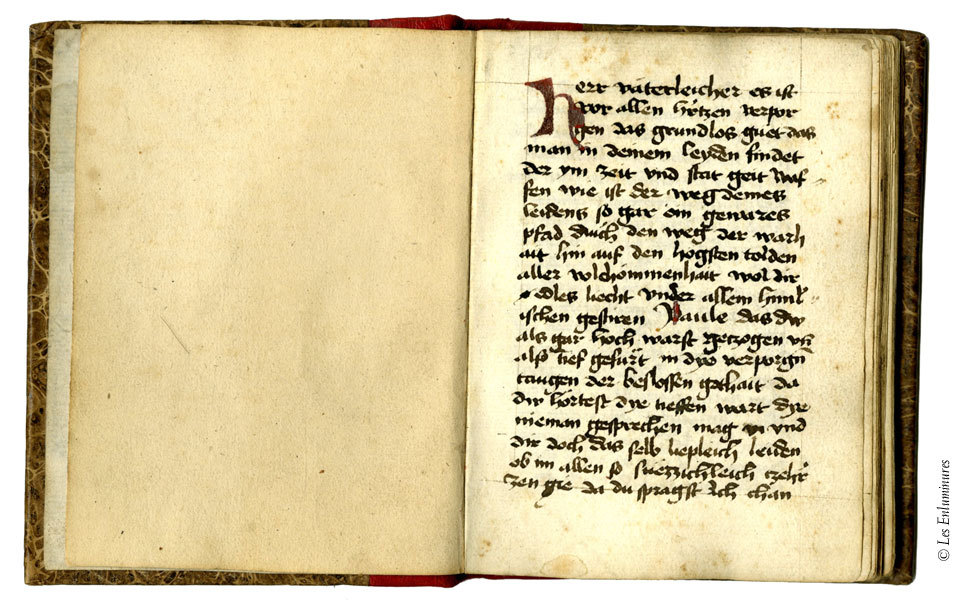 herr väterleicher es ist
vor allen hertzen verpor
gen das grundlos guet das
man in deinem leyden findet
der ym zeit vnd stat geit waf
fen wie ist der weg deines
leidens so gar ein gewares
pfad durch den weg der warh
ait hin auf den hogsten tolden
aller volchommenhait wol dir
edles liecht vnder allem himl
ischen gestiren Paule das dw
als gar hoch warst getzogen vn̄
alss tief gefürt in dye verporgn̄
taugen der beslossen gothait da
dw hortest dye tieffen wart dye
nieman gesprechen mag vnd
dir doch das selb liepleich leiden
ob im allen so suezzichleich
zen gie da du spragst Ich chan
© Les Enluminures